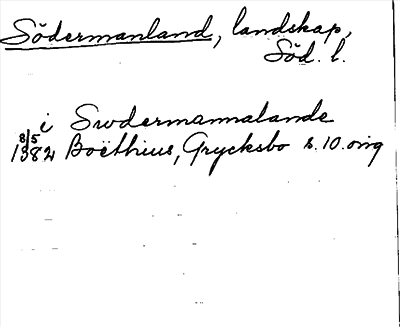 Södermanland, landskap,
Söd. l.
i Swdermannalande
8/5 1382 Boëthius, Grycksbo s. 10. orig